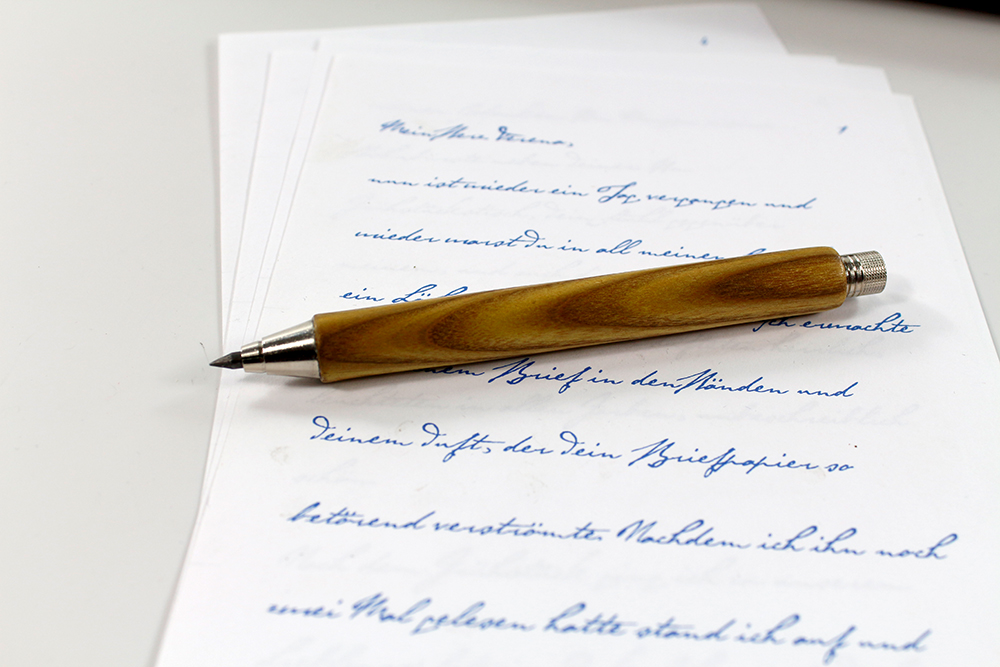 1
Mein Herz Verena,
nun ist wieder ein Tag vergangen und
wieder warst Du in all meinen
ein
Ich erwachte
Brief in den Händen und
deinem Duft, der dein Briefpapier so
betörend verströmte. Nachdem ich ihn noch
zwei Mal gelesen hatte stand ich auf und